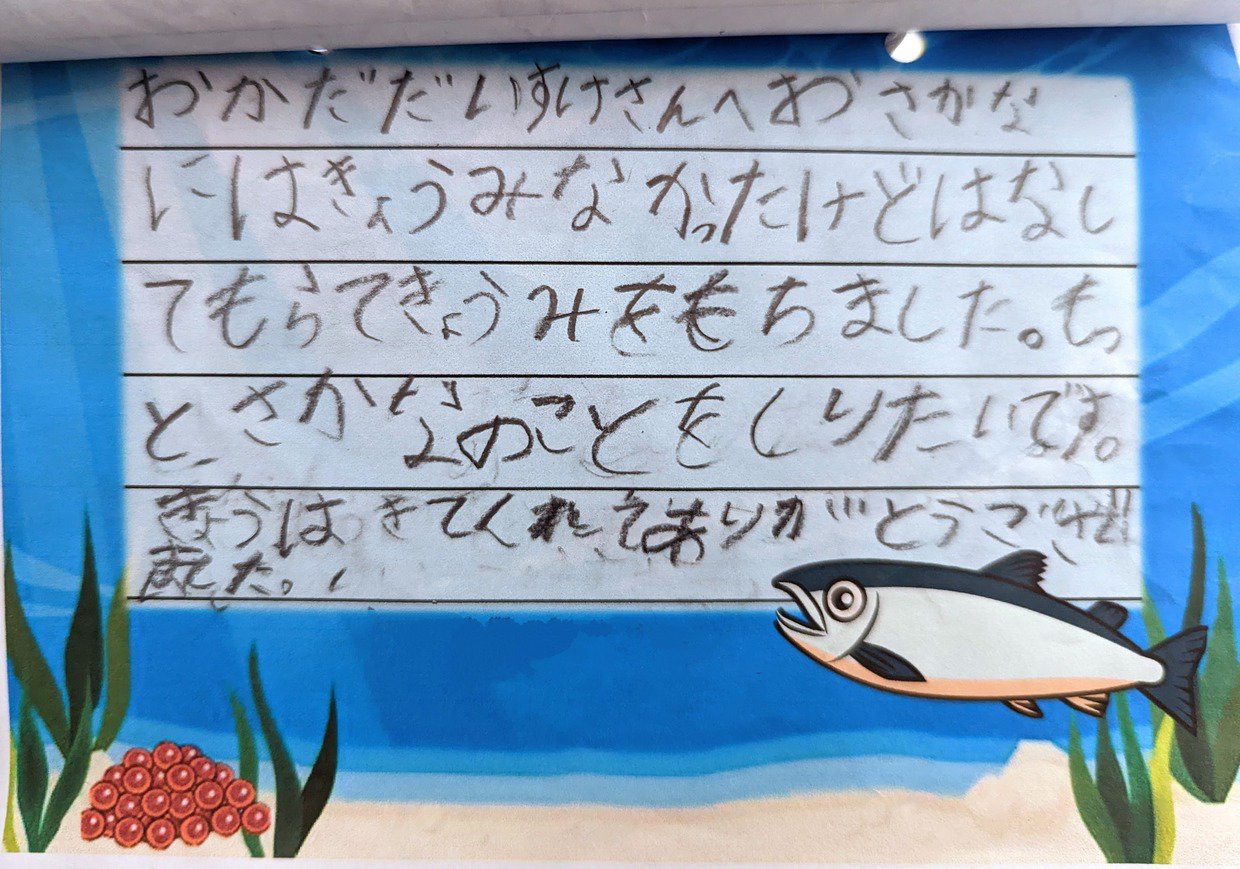 おかだだいすけさんへおさかな
にはきょうみなかったけどはなし
てもらてきょうみをもちました。もっ
と、さかなのことをしりたいです。
きょうはきてくれてありがとうござい
ました。